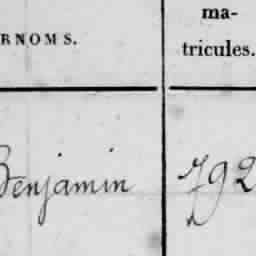 RNOMS.
ma-
tricules.
Benjamin
792